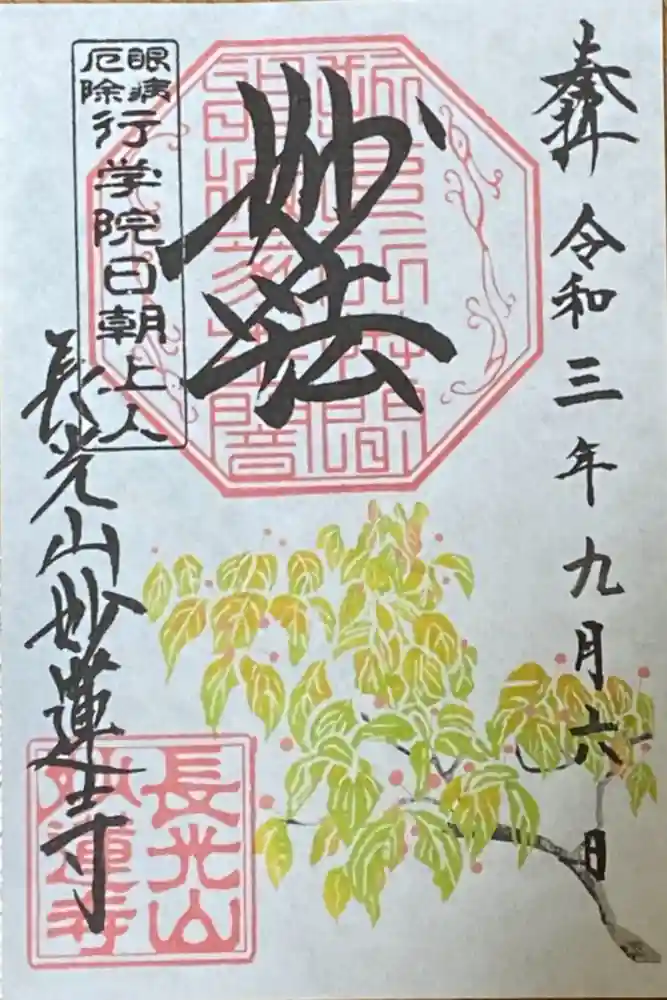 奉拝
令和三年九月六日
妙法
眼病
厄除
行学院日朝上人
長光山妙蓮寺
長光山
妙蓮寺